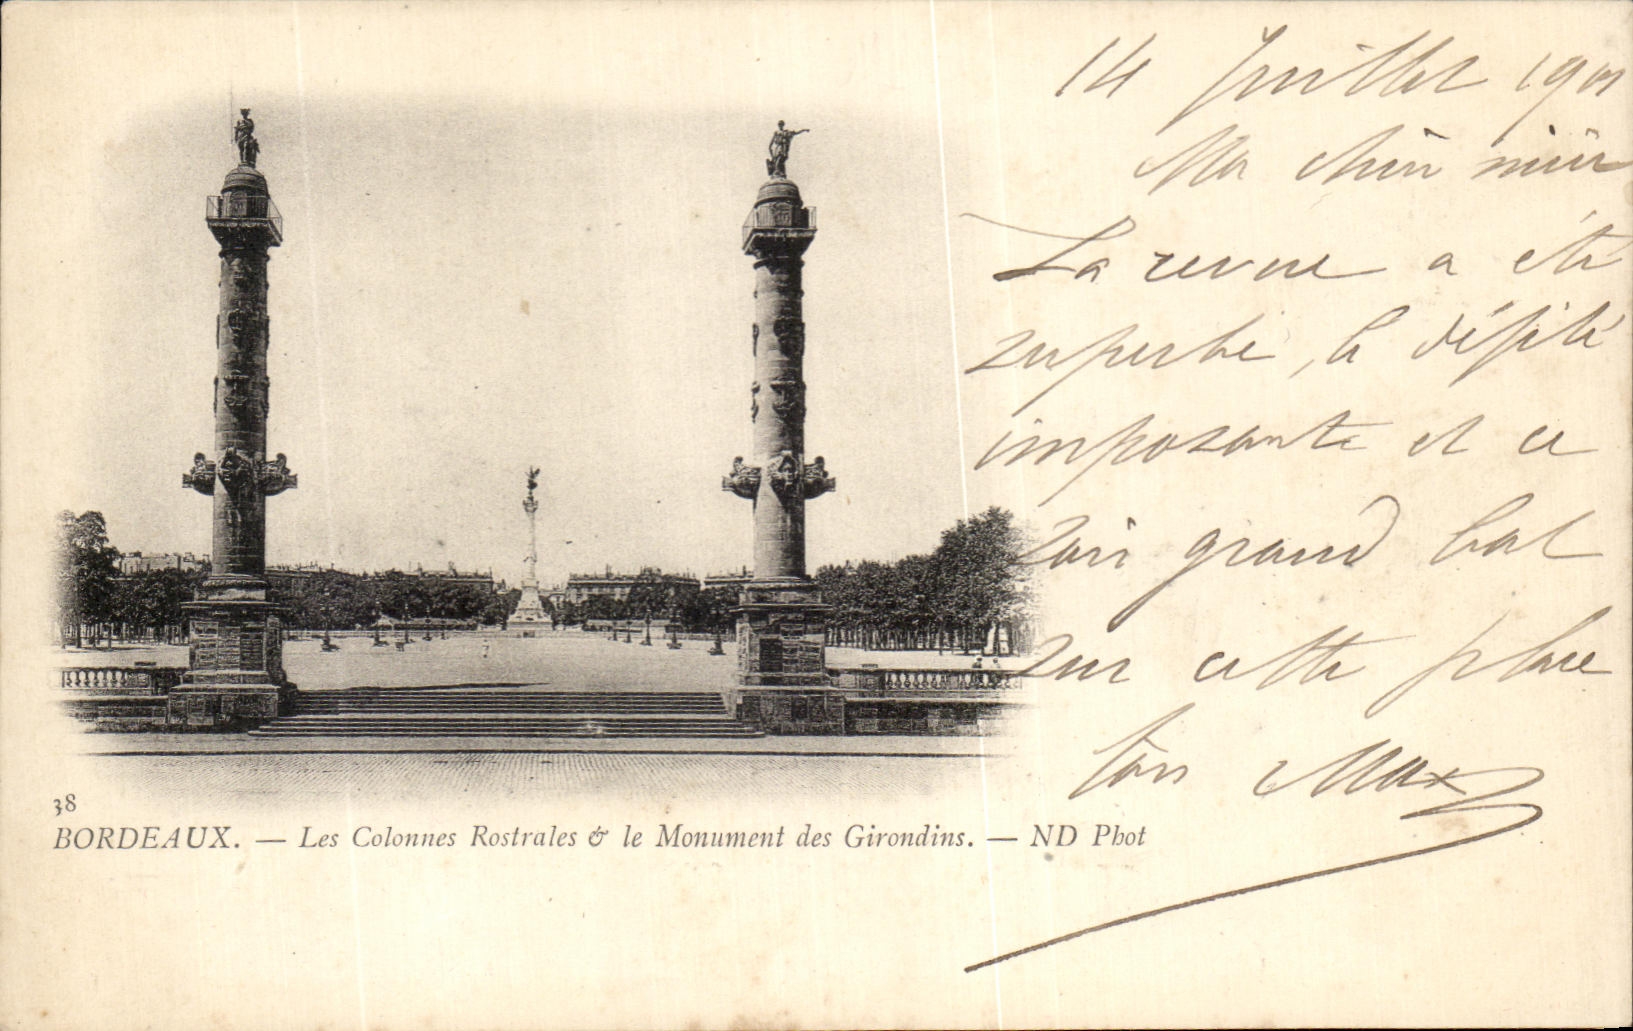 14 Juillet 1901
Ma chère mère
La revue a été
superbe, le défilé
imposante et ce
soir grand bal
sur cette place
ton Max
38
BORDEAUX. — Les Colonnes Rostrales & le Monument des Girondins. — ND Phot